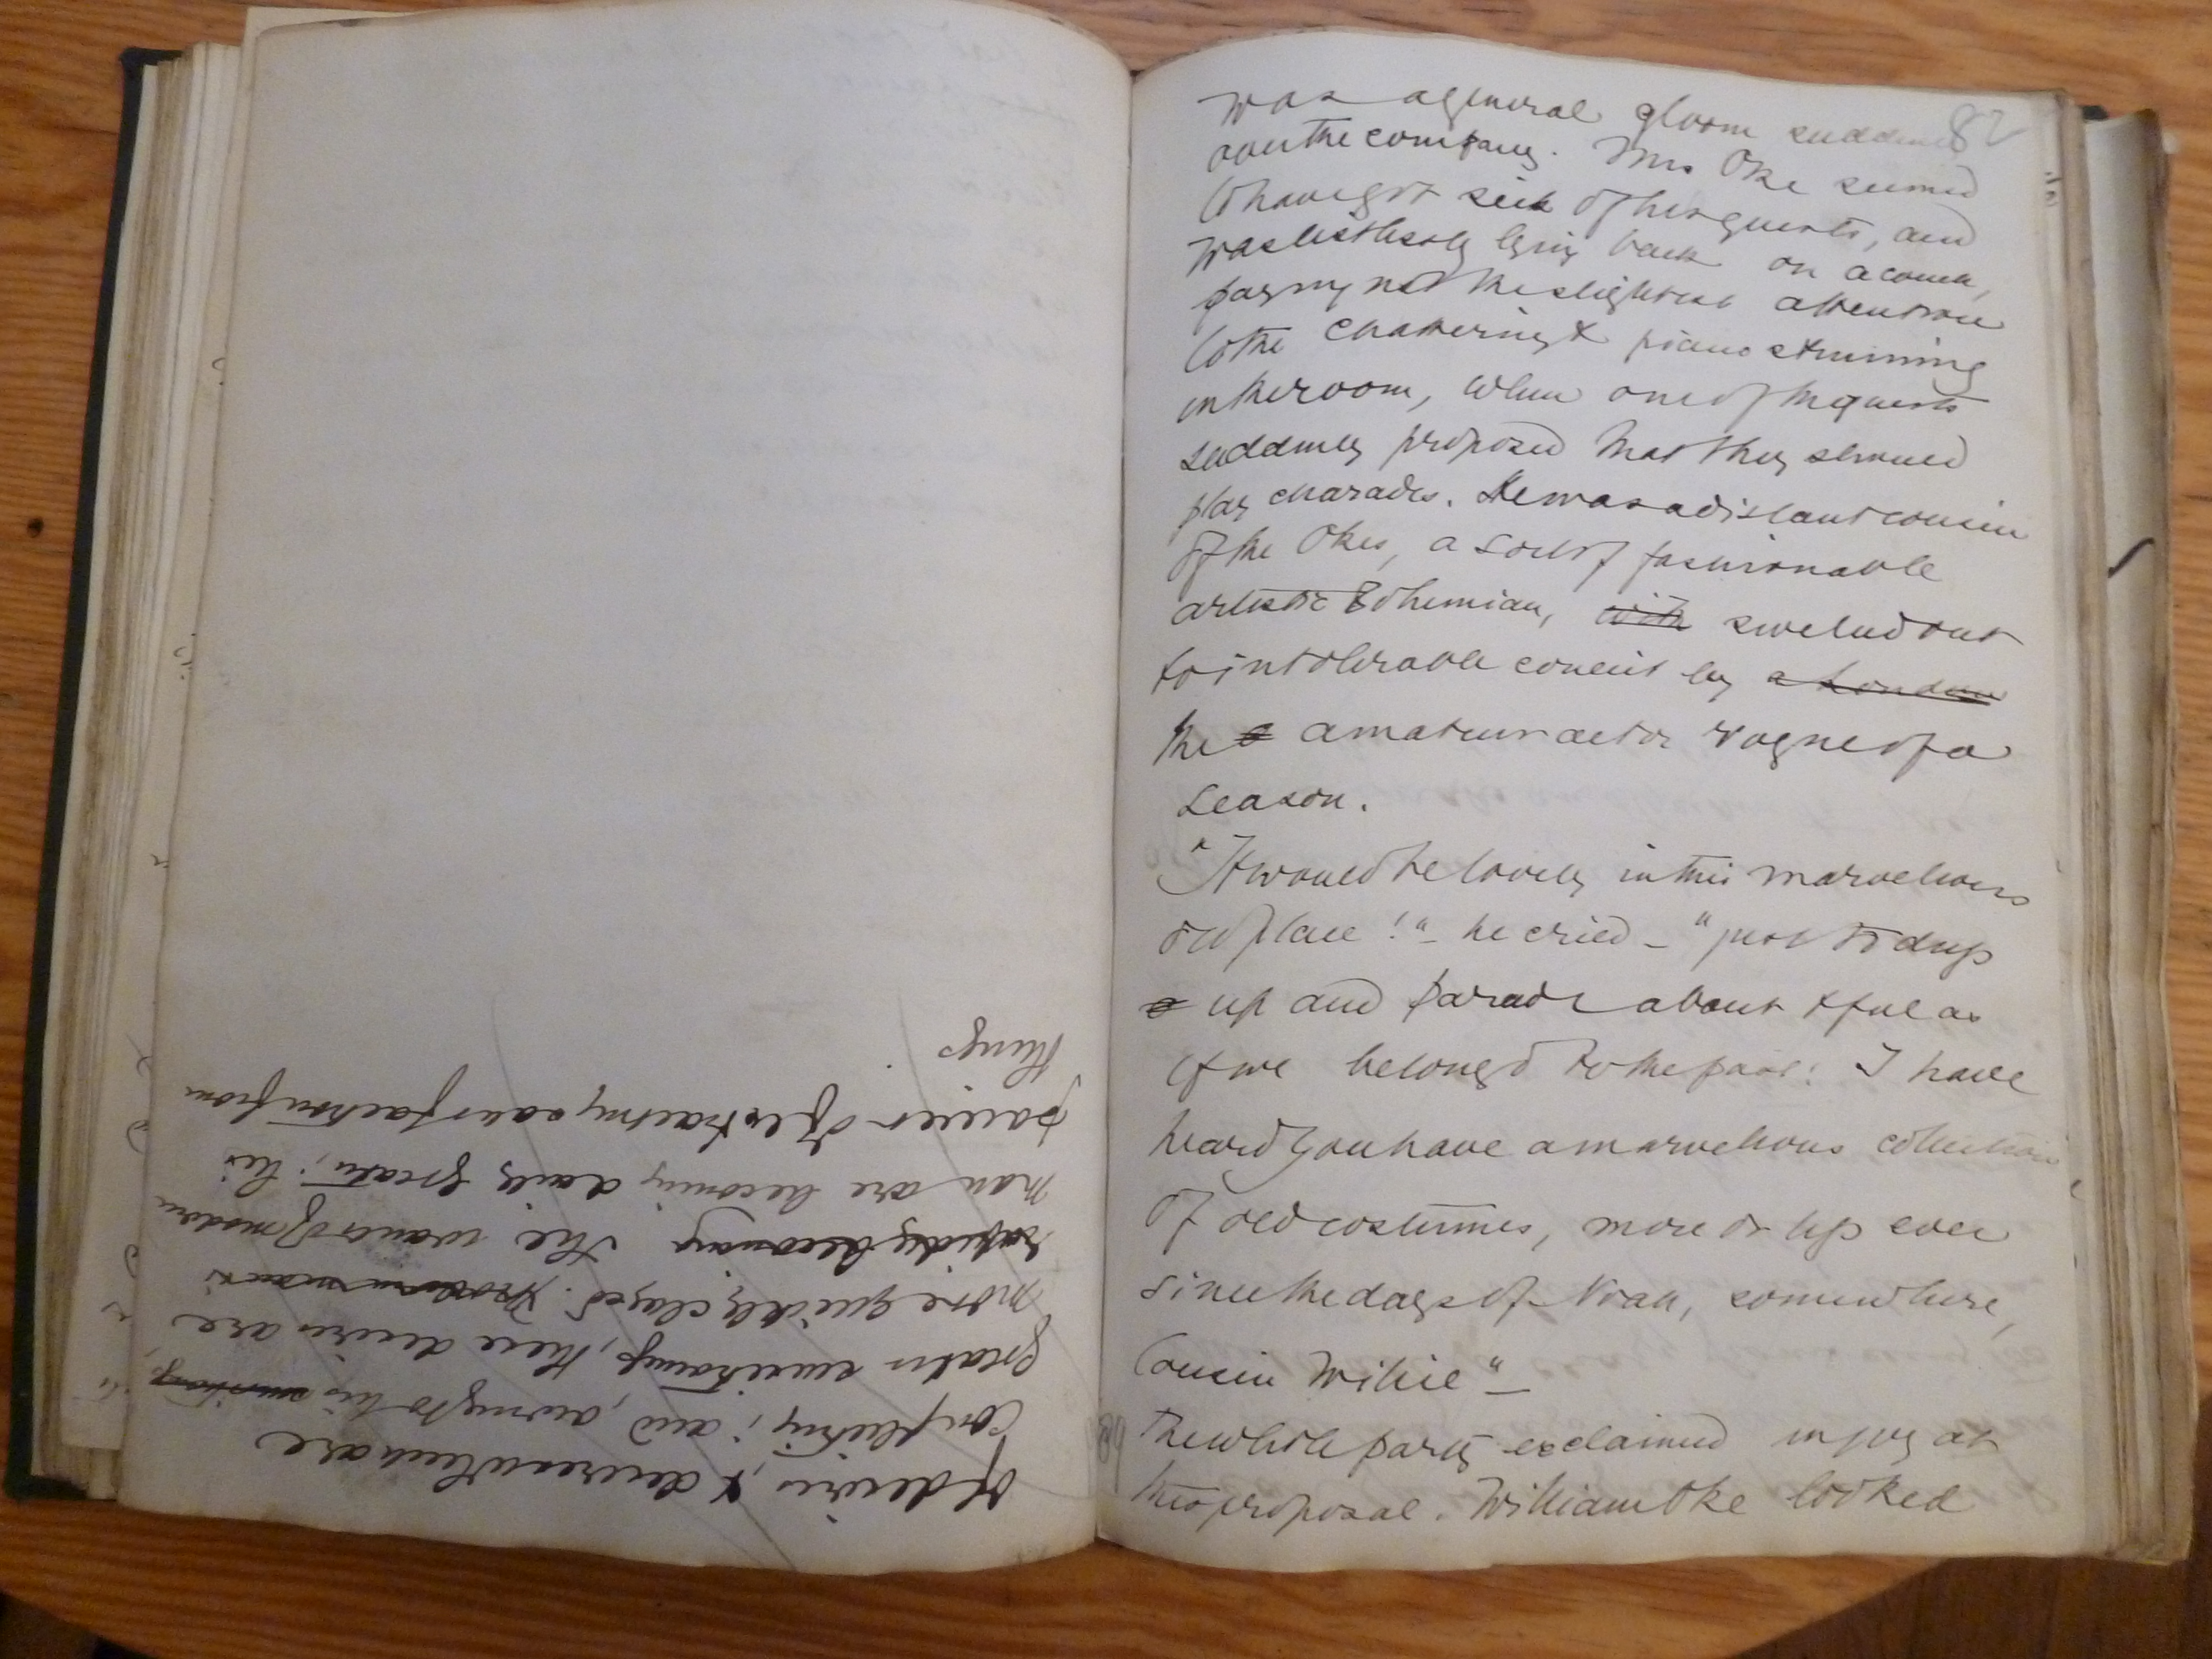 82
was a general gloom suddenly
over the company. Mrs Oke seemed
to have got sick of her guests, and
was listlessly lying back on a couch,
paying not the slightest attention
to the chattering & piano strumming
in the room, when one of the guests
suddenly proposed that they should
play charades. He was a distant cousin
of the Okes, a sort of fashionable
artistic Bohemian, with swelled out
to intolerable conceit by a London
the a amateur actor vogue of a
season.
"It would be lovely in this marvellous
old place!" – he cried – "just to dress
up and parade about & feel as
if we belonged to the past! I have
heard you have a marvellous collection
of old costumes, more or less ever
since the days of Noah, somewhere,
Cousin Willie" –
The whole party exclaimed in joy at
this proposal. William Oke looked
of desires, & desires when are
conflicting; and, owing to his
greater surroundings, these desires are
more quickly closed. Modern man is
rapidly becoming The wants of modern
man are becoming daily greater; his
power of extracting satisfaction from
things